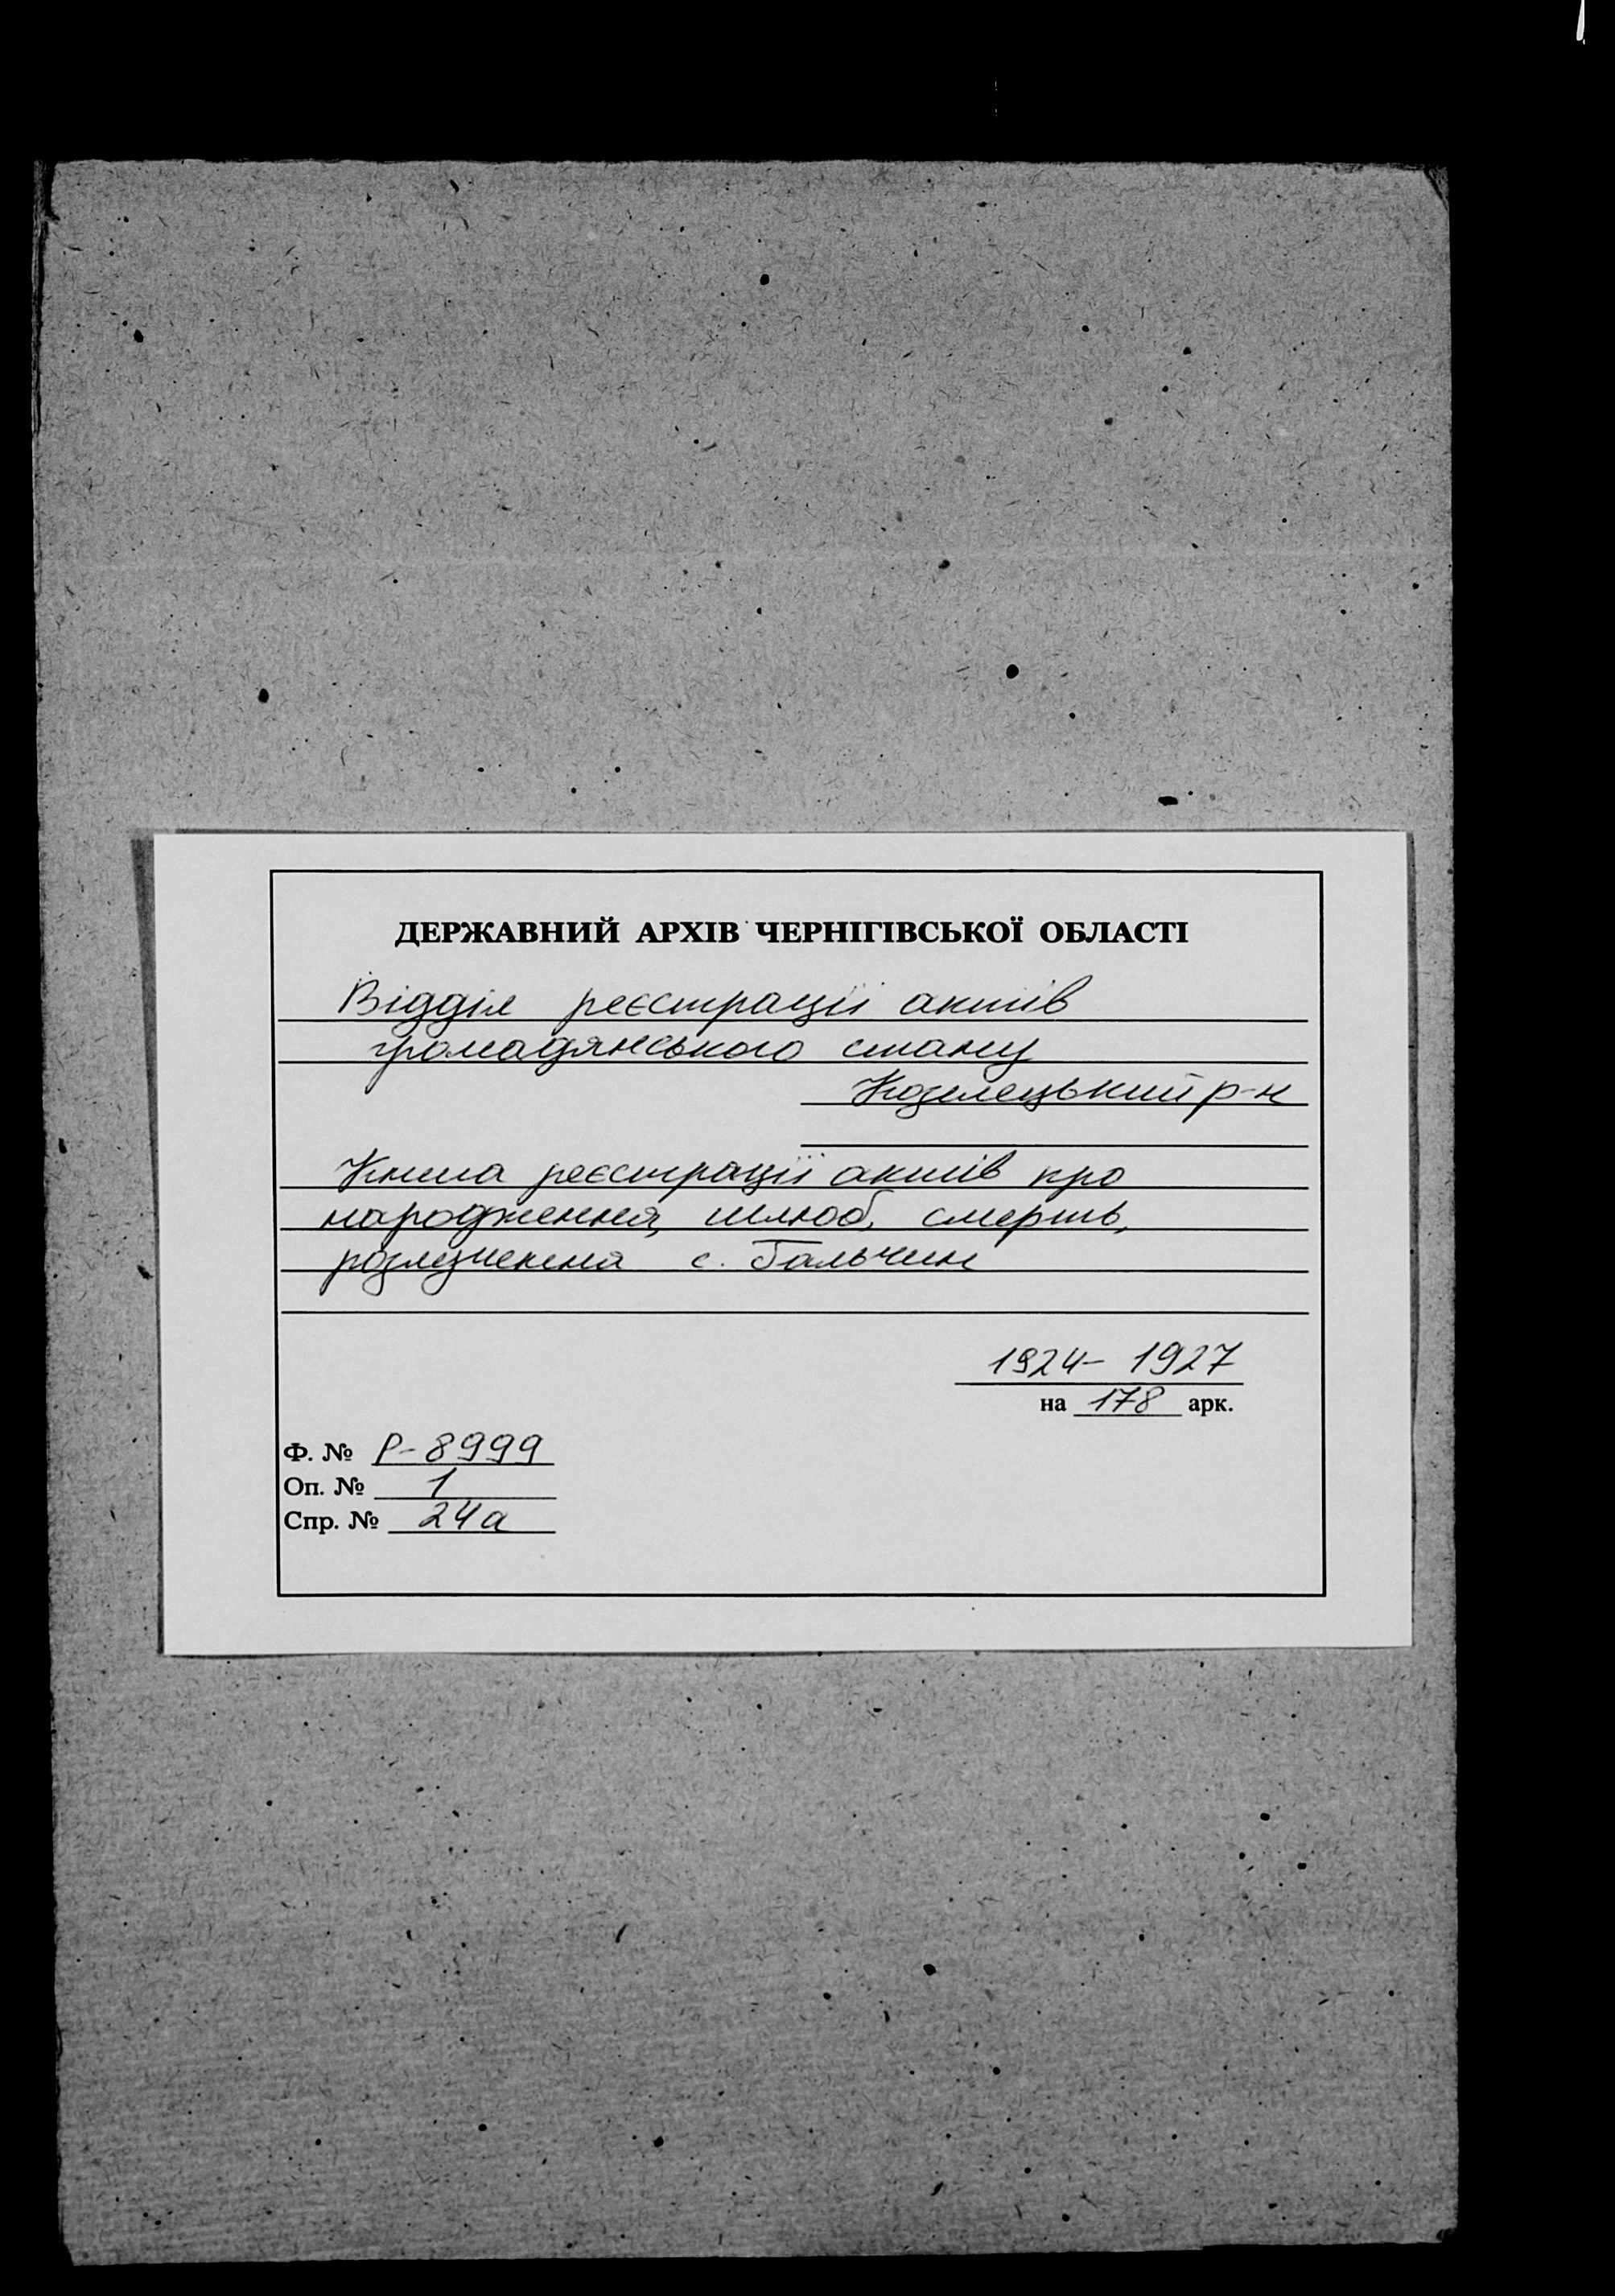 ДЕРЖАВНИЙ АРХІВ ЧЕРНІГІВСЬКОЇ ОБЛАСТІ
Відділ реєстрації актів
громадянського стану
Козелецький р-н
Книга реєстрації актів про
народження, шлюб, смерть,
розлучення с. Гальчин
1924- 1927
на 178 арк.
Ф. № Р-8999
Оп. № 1
Спр. № 24а